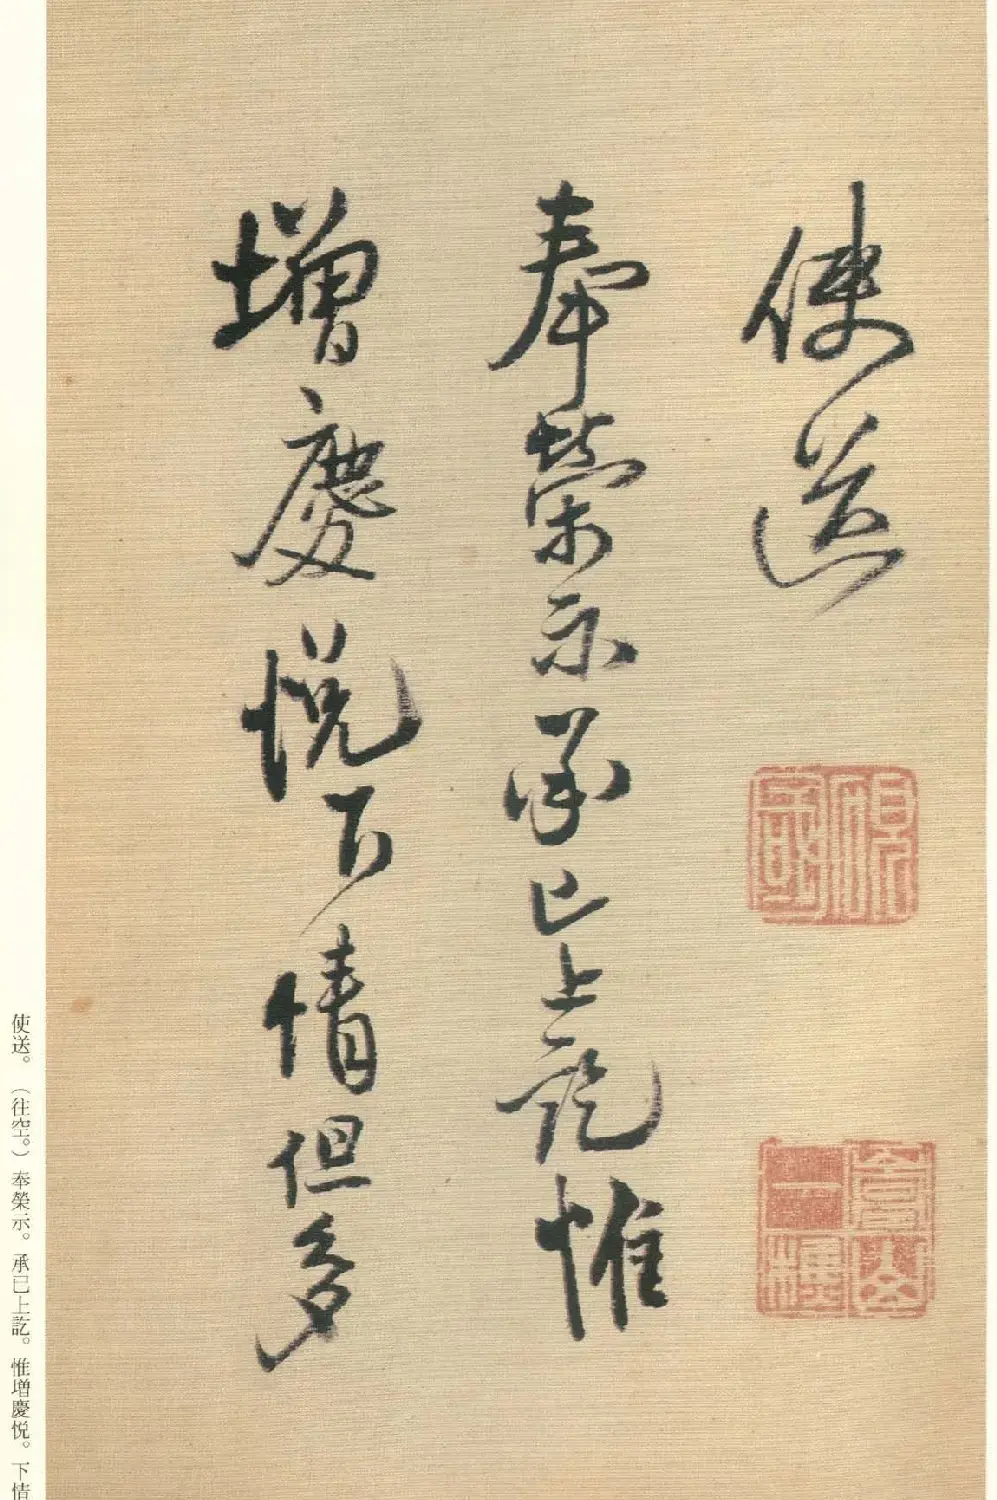 使送
奉榮示承已上訖惟
增慶悅下情但多
使送。（往空。）奉榮示。承已上訖。惟增慶悅。下情